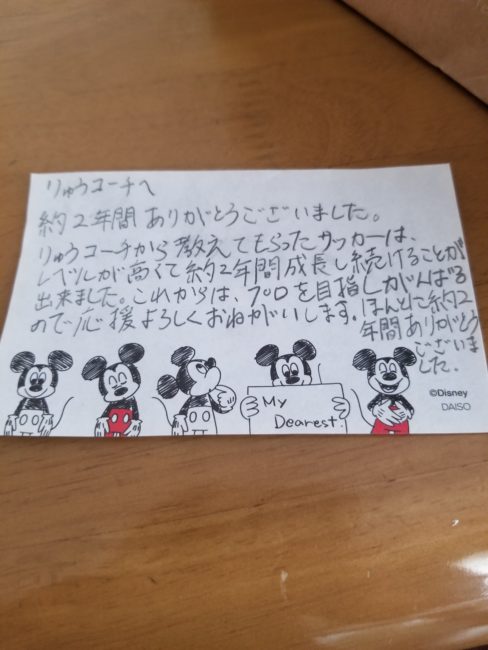 りゅうコーチへ
約2年間ありがとうございました。
りゅうコーチから教えてもらったサッカーは、
レベルが高くて約2年間成長し続けることが
出来ました。これからは、プロを目指しがんばる
ので応援よろしくおねがいします。ほんとに約2
年間ありがとう
ございま
した.
My
Dearest.
©Disney
DAISO